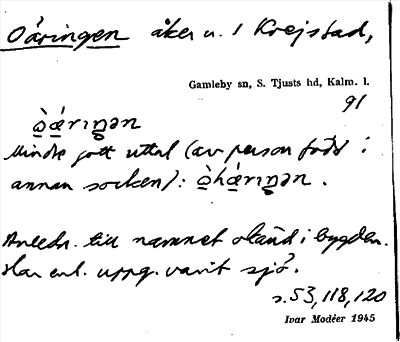 Oäringen åker u. 1 Krejstad,
Gamleby sn, S. Tjusts hd, Kalm. l.
91
ò̱ǽrıŋən
Mindre gott uttal (av person född i
annan socken): ò̱hǽrıŋən.
Anledn. till namnet okänd i bygden.
Har enl. uppg. varit sjö.
s. 53, 118, 120
Ivar Modéer 1945